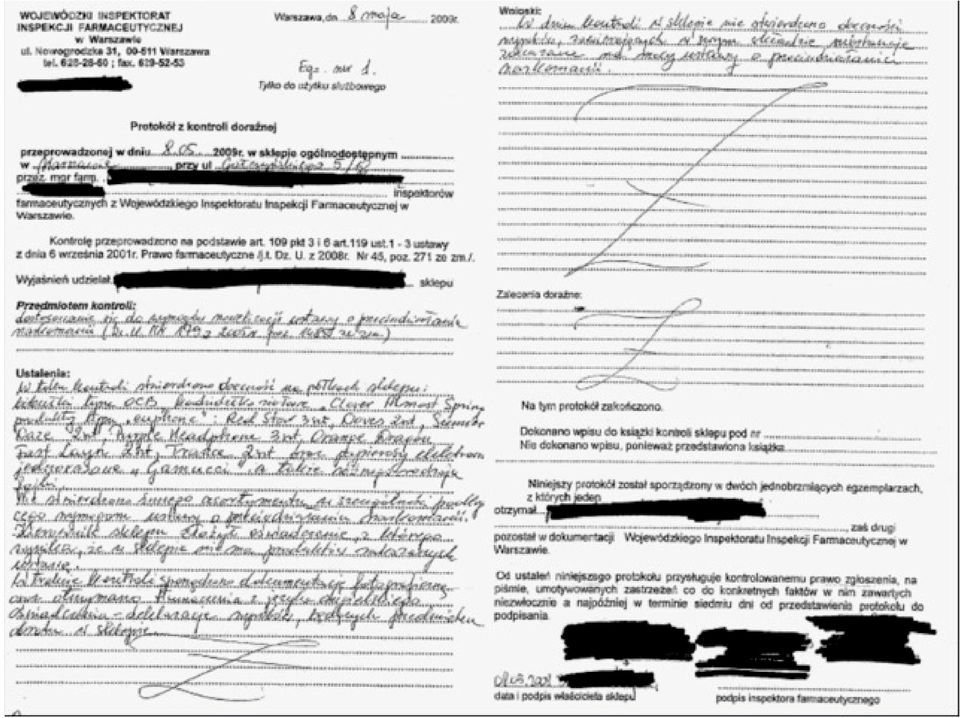 WOJEWÓDZKI INSPEKTORAT
INSPEKCJI FARMACEUTYCZNEJ
w Warszawie
ul. Nowogrodzka 31, 00-511 Warszawa
tel. 628-28-60 ; fax. 629-52-53
Warszawa, dn 8 maja 2009r.
Egz. nr 1.
Tylko do użytku służbowego
Protokół z kontroli doraźnej
przeprowadzonej w dniu 8.05. 2009r. w sklepie ogólnodostępnym
w Warszawie, przy ul
przez mgr farm.
inspektorów
farmaceutycznych z Wojewódzkiego Inspektoratu Inspekcji Farmaceutycznej w
Warszawie.
Kontrolę przeprowadzono na podstawie art. 109 pkt 3 i 6 art.119 ust.1 - 3 ustawy
z dnia 6 września 2001r. Prawo farmaceutyczne /j.t. Dz. U. z 2008r. Nr 45, poz. 271 ze zm./.
Wyjaśnień udzielał sklepu
Przedmiotem kontroli:
dostosowanie się do wymogów nowelizacji ustawy o przeciwdziałaniu
narkomanii (Dz.U. Nr 179 z 2005r. poz. 1485 ze zm.)
Ustalenia:
W toku kontroli stwierdzono obecność na półkach sklepu:
bibułki typu OCB
produkty typu : Red Star 3 szt, Doves 2 szt, Summer
Daze 2 szt, Purple Headphone 3 szt, Orange Dragon
2 szt, 2 szt oraz papierosy
jednorazowe „Gamucci” a także
Nie stwierdzono innego asortymentu w szczególności
wymogom ustawy o przeciwdziałaniu narkomanii.
sklepu złożył oświadczenie, z którego
wynika, że w sklepie nie ma produktów zakazanych
ustawą.
W trakcie kontroli sporządzono dokumentację fotograficzną
oraz otrzymano tłumaczenia z języka angielskiego
oświadczenia - deklaracje będących przedmiotem
obrotu w sklepie.
Wnioski:
W dniu kontroli w sklepie nie stwierdzono obecności
wyrobów, zawierających w swym składzie substancje
zakazane na mocy ustawy o przeciwdziałaniu
narkomanii.
Zalecenia doraźne:
Na tym protokół zakończono.
Dokonano wpisu do książki kontroli sklepu pod nr
Nie dokonano wpisu, ponieważ przedstawiona książka
Niniejszy protokół został sporządzony w dwóch jednobrzmiących egzemplarzach,
z których jeden
otrzymał
zaś drugi
pozostał w dokumentacji Wojewódzkiego Inspektoratu Inspekcji Farmaceutycznej w
Warszawie.
Od ustaleń niniejszego protokołu przysługuje kontrolowanemu prawo zgłoszenia, na
piśmie, umotywowanych zastrzeżeń co do konkretnych faktów w nim zawartych
niezwłocznie a najpóźniej w terminie siedmiu dni od przedstawienia protokołu do
podpisania.
data i podpis właściciela sklepu
podpis inspektora farmaceutycznego